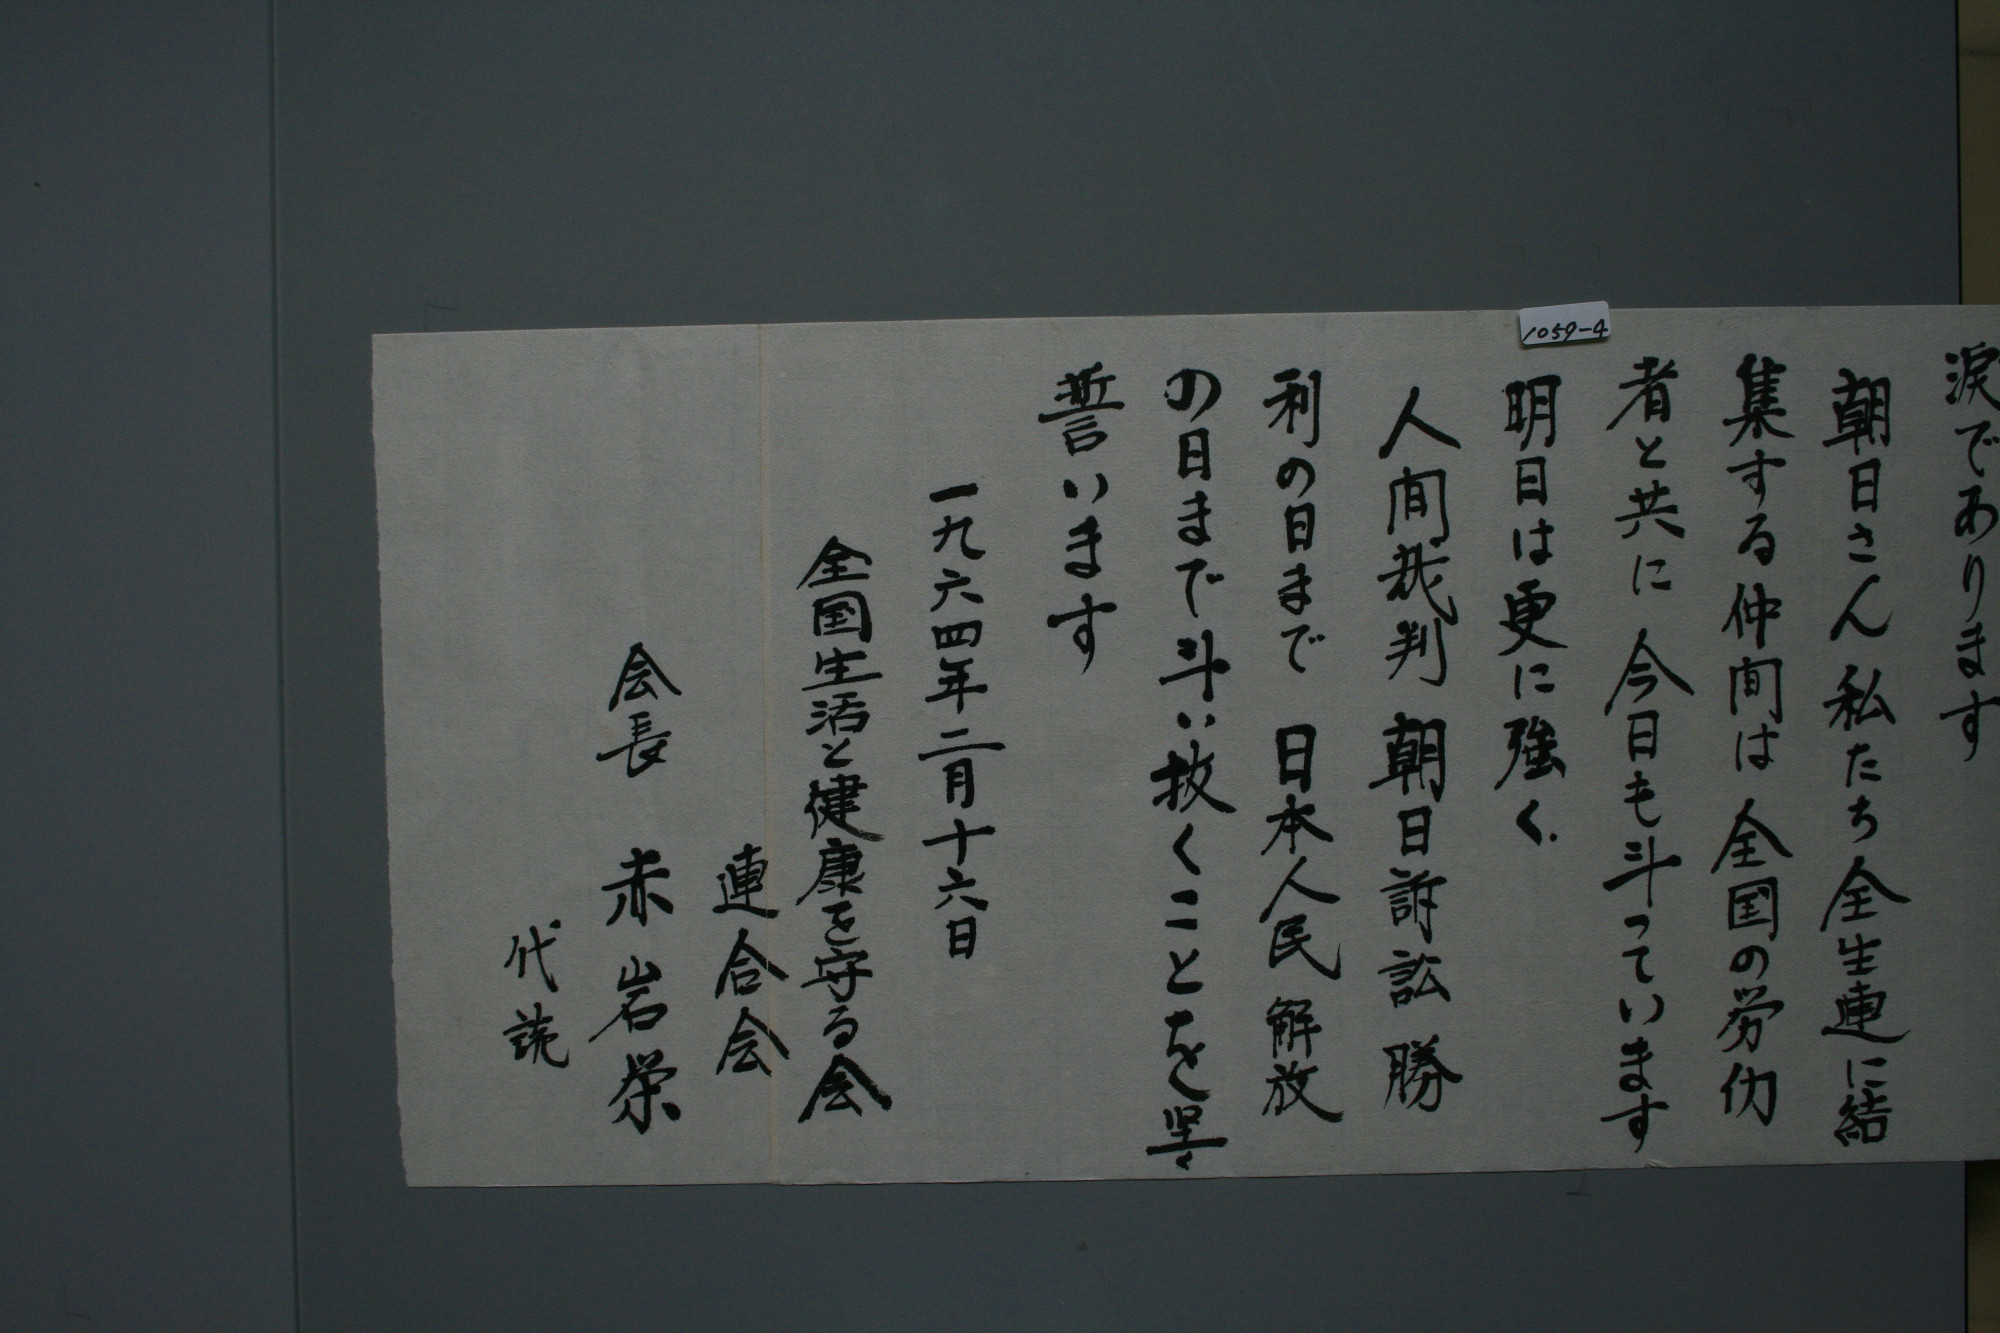 涙であります
朝日さん 私たち全生連に結
集する仲间は 全国の労仂
者と共に 今日も斗っています
明日は更に強く.
人间裁判 朝日訴訟 勝
利の日まで 日本人民 解放
の日まで 斗い抜くことを堅く
誓います
一九六四年二月十六日
全国生活と健康を守る会
連合会
会長 赤岩栄
代読
1059-4